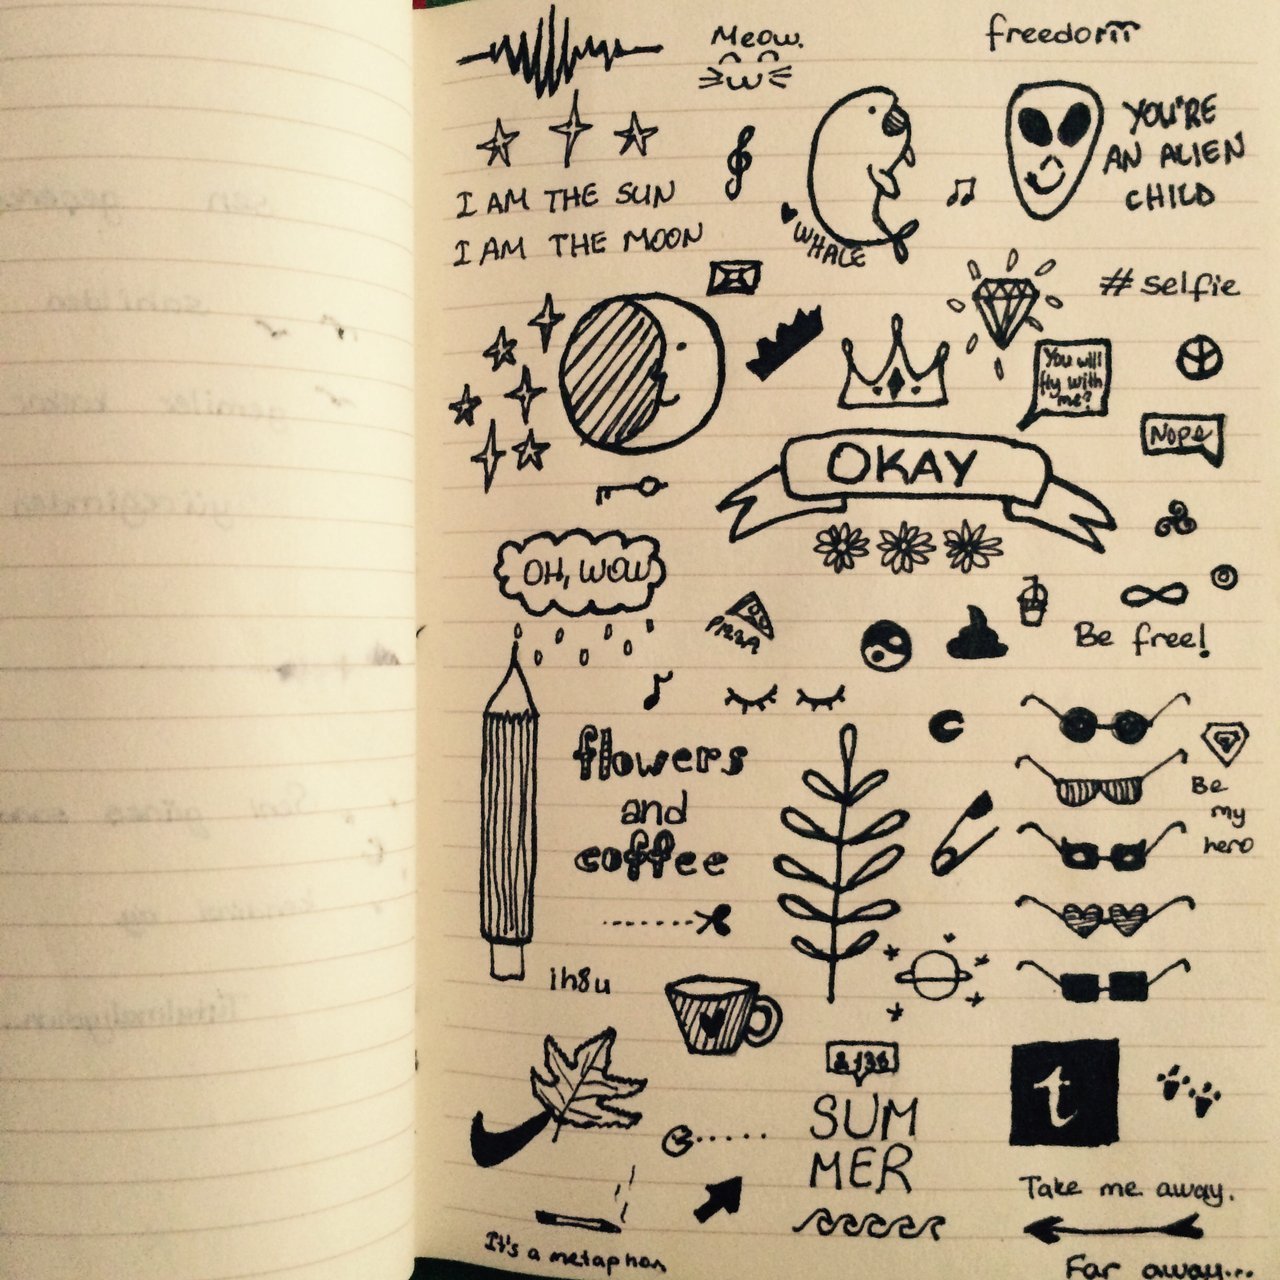 Meow.
freedom
I AM THE SUN
I AM THE MOON
WHALE
YOU'RE
AN ALIEN
CHILD
#selfie
You will
fly with
me?
Nope
OKAY
OH, WOW
PIZZA
Be free!
flowers
and
coffee
Be
my
hero
ih8u
SUM
MER
t
Take me away.
It's a metaphor
Far away...